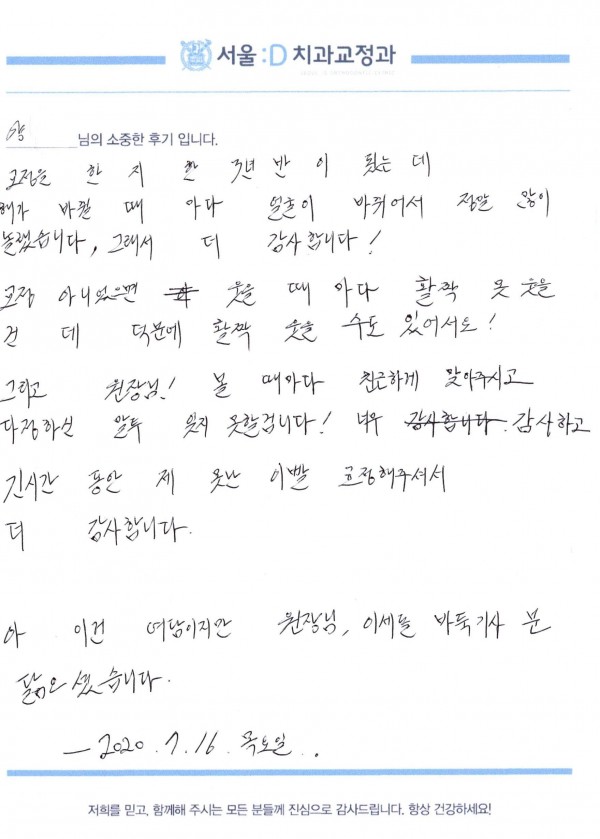 서울:D 치과교정과
양 님의 소중한 후기 입니다.
교정을 한 지 한 3년 반 이 됬는 데
해가 바뀔 때 마다 얼굴이 바뀌어서 정말 많이
놀랬습니다, 그래서 더 감사합니다!
교정 아니었으면 웃을 때 마다 활짝 못 웃을
건 데 덕분에 활짝 웃을 수도 있어서도!
그리고 원장님! 볼 때마다 친근하게 맞아주시고
다정하신 말투 잊지 못할겁니다! 너무 감사합니다 감사하고
긴시간 동안 제 못난 이빨 교정해주셔서
더 감사합니다.
아 이건 여담이지만 원장님, 이세돌 바둑기사 분
닮으셨습니다.
- 2020. 7. 16. 목요일..
저희를 믿고, 함께해 주시는 모든 분들께 진심으로 감사드립니다. 항상 건강하세요!